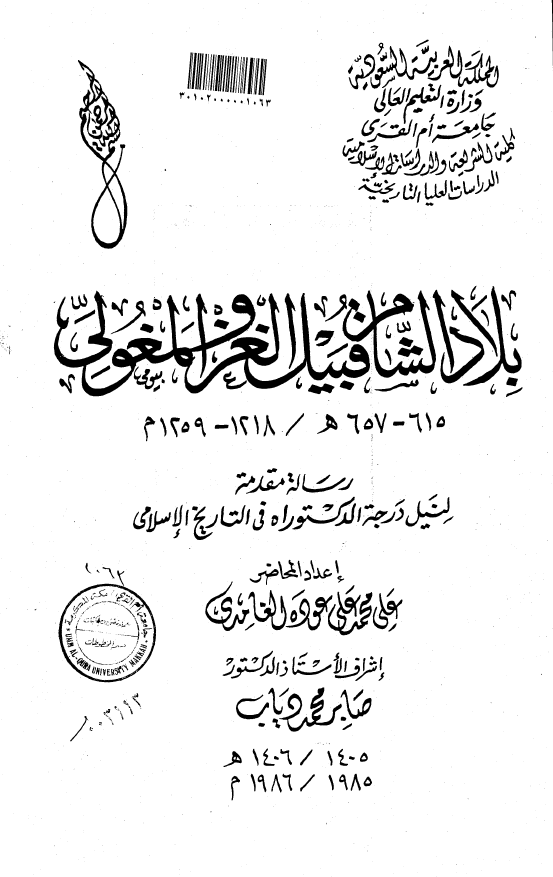 المملكة العربية السعودية
وزارة التعليم العالي
جامعة أم القرى
كلية الشريعة والدراسات الإسلامية
الدراسات العليا التاريخية
٣٠١٠٢٠٠٠٠٠١٠٦٣
بلاد الشام قبيل الغزو المغولي
٦١٥ - ٦٥٧ هـ / ١٢١٨ - ١٢٥٩ م
رسالة مقدمة
لنيل درجة الدكتوراه في التاريخ الإسلامي
إعداد المحاضر
علي محمد علي عوده الغامدي
إشراف الأستاذ الدكتور
صابر محمد دياب
١٤٠٥ / ١٤٠٦ هـ
١٩٨٥ / ١٩٨٦ م
٢٠٦٢
جامعة أم القرى مكة المكرمة
UMM AL-QURA UNIVERSITY MAKKAH